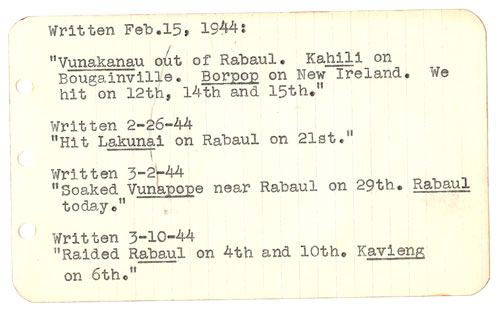 Written Feb.15, 1944:
"Vunakanau out of Rabaul. Kahili on
Bougainville. Borpop on New Ireland. We
hit on 12th, 14th and 15th."
Written 2-26-44
"Hit Lakunai on Rabaul on 21st."
Written 3-2-44
"Soaked Vunapope near Rabaul on 29th. Rabaul
today."
Written 3-10-44
"Raided Rabaul on 4th and 10th. Kavieng
on 6th."